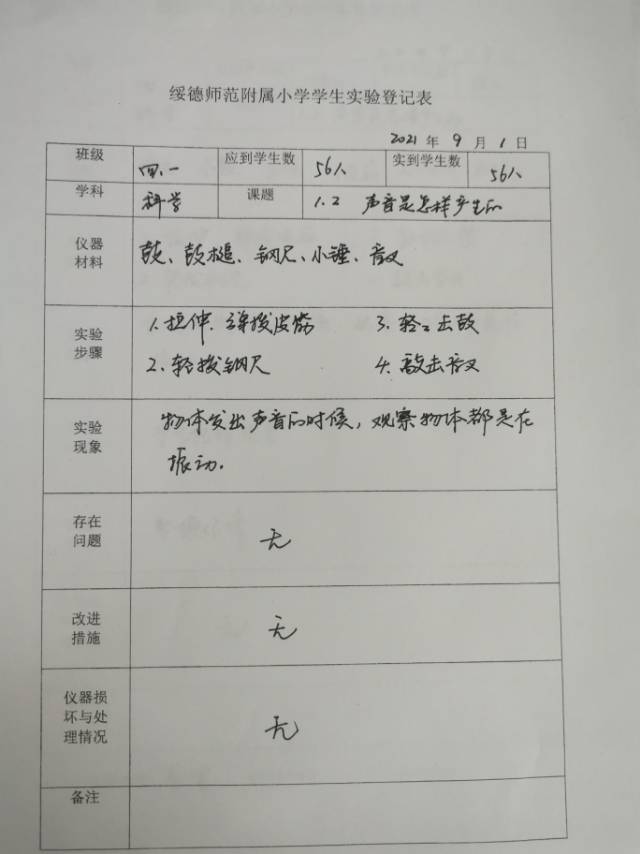 绥德师范附属小学学生实验登记表
2021 年 9 月 1 日
班级 四.一 应到学生数 56人 实到学生数 56人
学科 科学 课题 1.2 声音是怎样产生的
仪器材料 鼓、鼓槌、钢尺、小锤、音叉
实验步骤
1. 拉伸、弹拨皮筋 3. 轻轻击鼓
2. 轻拨钢尺 4. 敲击音叉
实验现象 物体发出声音的时候，观察物体都是在
振动.
存在问题 无
改进措施 无
仪器损坏与处理情况 无
备注